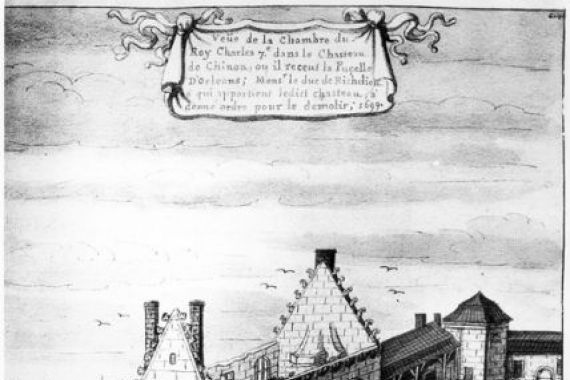 Veüe de la Chambre du
Roy Charles 7.e dans le Chasteau
de Chinon, ou il receut la Pucelle
D'orleans; Mons.r le duc de Richelieu
a qui appartient ledict chasteau, a
donné ordre pour le demolir; 1699.